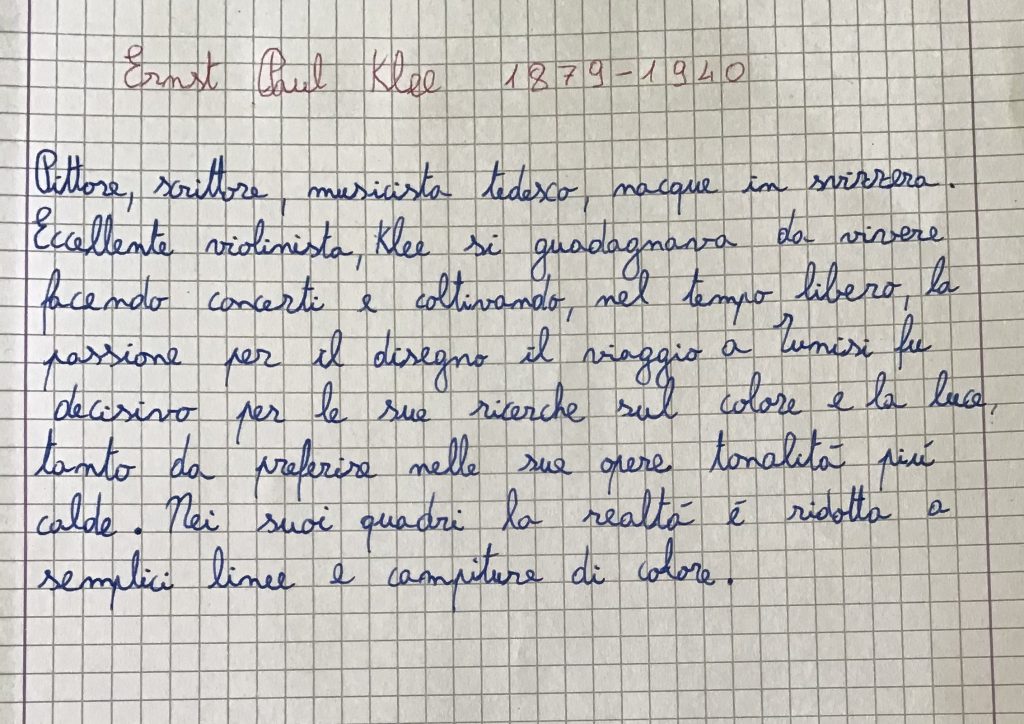 Ernst Paul Klee 1879-1940
Pittore, scrittore, musicista tedesco, nacque in svizzera.
Eccellente violinista, Klee si guadagnava da vivere
facendo concerti e coltivando, nel tempo libero, la
passione per il disegno il viaggio a Tunisi fu
decisivo per le sue ricerche sul colore e la luce,
tanto da preferire nelle sue opere tonalità più
calde. Nei suoi quadri la realtà è ridotta a
semplici linee e campiture di colore.